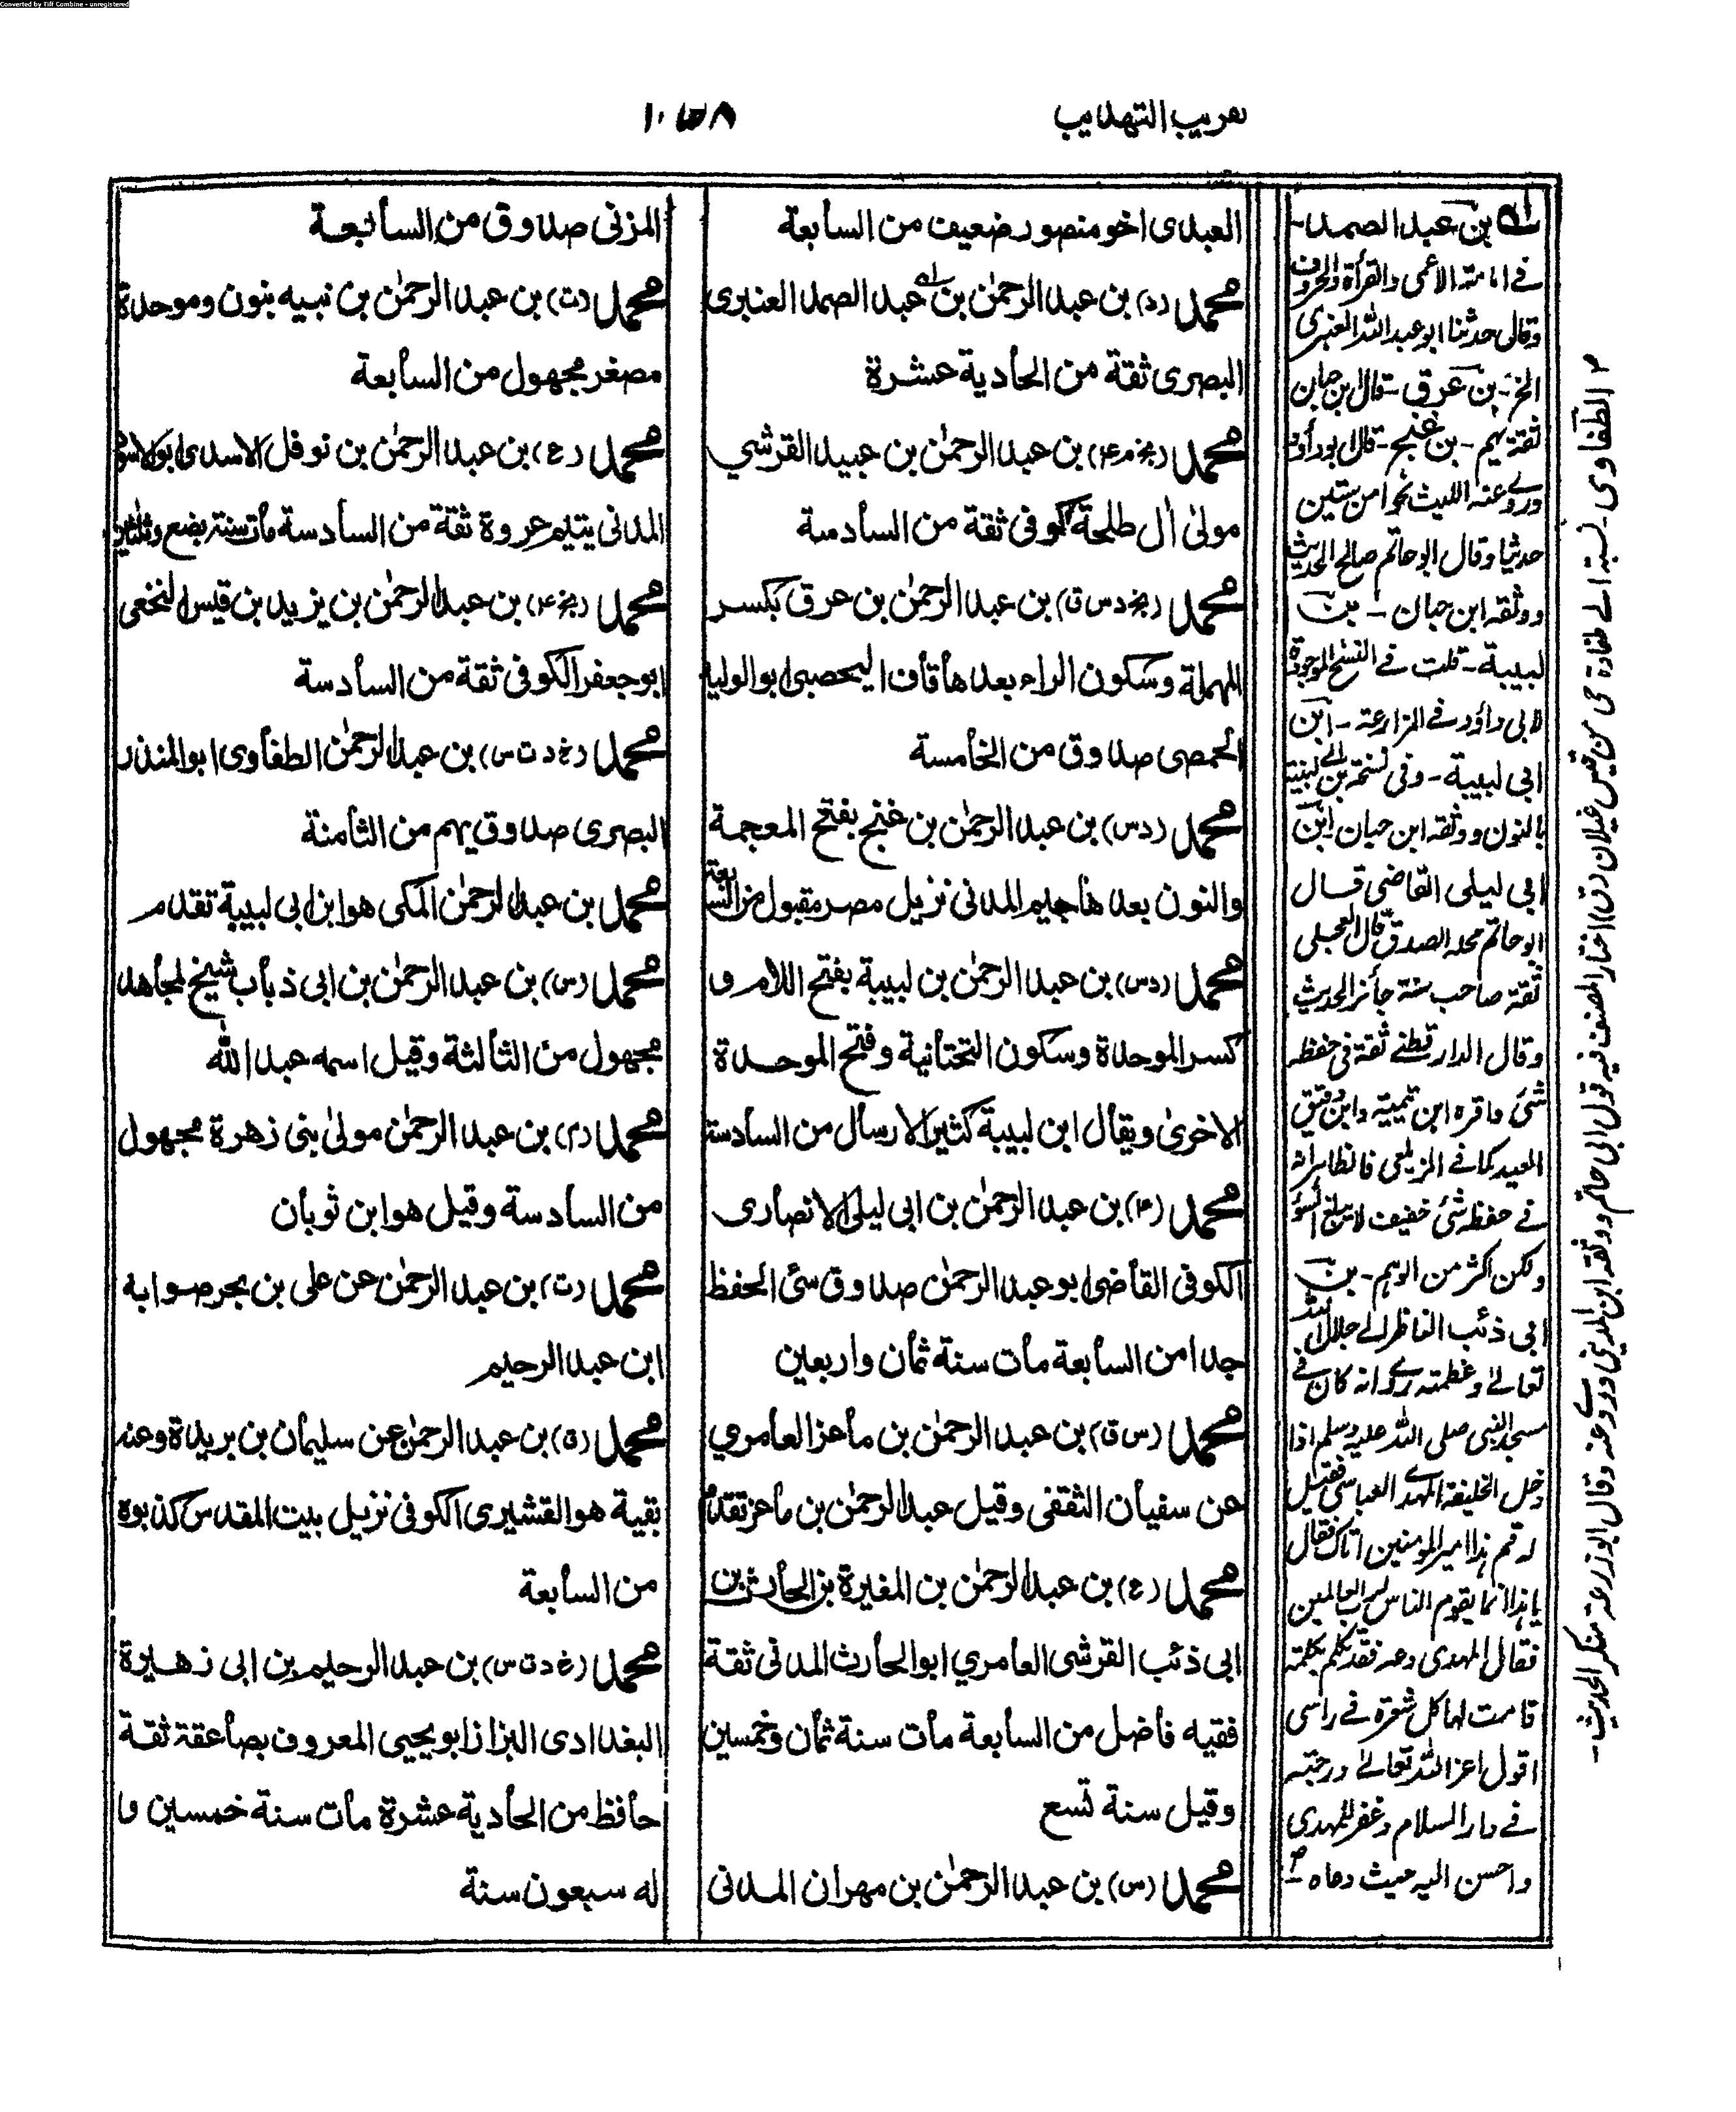 Converted by Tiff Combine - unregistered
تقريب التهذيب
العبدى اخو منصور ضعيف من السابعة
محمد (د) بن عبد الرحمٰن بن عبد الصمد العنبرى
البصرى ثقة من الحادية عشرة
محمد (بخ م ۴) بن عبد الرحمٰن بن عبيد القرشي
مولىٰ اٰل طلحة كوفى ثقة من السادسة
محمد (بخ د س ق) بن عبد الرحمٰن بن عرق بكسر
المهملة وسكون الراء بعدها قاف اليحصبى ابو الوليد
الحمصى صدوق من الخامسة
محمد (د س) بن عبد الرحمٰن بن غنج بفتح المعجمة
والنون بعدها جيم المدنى نزيل مصر مقبول من السابعة
محمد (د س) بن عبد الرحمٰن بن لبيبة بفتح اللام و
كسر الموحدة وسكون التحتانية وفتح الموحدة
الاخرىٰ ويقال ابن لبيبة كثير الارسال من السادسة
محمد (۴) بن عبد الرحمٰن بن ابى ليلى الانصارى
الكوفى القاضى ابو عبد الرحمٰن صدوق سئ الحفظ
جدا من السابعة مات سنة ثمان واربعين
محمد (س ق) بن عبد الرحمٰن بن ماعز العامري
عن سفيان الثقفى وقيل عبد الرحمٰن بن ماعز تقدم
محمد (ع) بن عبد الرحمٰن بن المغيرة بن الحارث بن
ابى ذئب القرشى العامري ابو الحارث المدنى ثقة
فقيه فاضل من السابعة مات سنة ثمان وخمسين
وقيل سنة تسع
محمد (س) بن عبد الرحمٰن بن مهران المدنى
المزنى صدوق من السابعة
محمد (ت) بن عبد الرحمٰن بن نبيه بنون وموحدة
مصغر مجهول من السابعة
محمد (ع) بن عبد الرحمٰن بن نوفل الاسدى ابو الاسود
المدنى يتيم عروة ثقة من السادسة مات سنة بضع وثلثين
محمد (بخ ۴) بن عبد الرحمٰن بن يزيد بن قيس النخعى
ابو جعفر الكوفى ثقة من السادسة
محمد (خ د ت س) بن عبد الرحمٰن الطفاوى ابو المنذر
البصرى صدوق يهم من الثامنة
محمد بن عبد الرحمٰن المكى هو ابن ابى لبيبة تقدم
محمد (س) بن عبد الرحمٰن بن ابى ذباب شيخ لمجاهد
مجهول من الثالثة وقيل اسمه عبد الله
محمد (م) بن عبد الرحمٰن مولىٰ بنى زهرة مجهول
من السادسة وقيل هو ابن ثوبان
محمد (ت) بن عبد الرحمٰن عن على بن بحر صوابه
ابن عبد الرحيم
محمد (ق) بن عبد الرحمٰن عن سليمان بن بريدة وعنه
بقية هو القشيرى الكوفى نزيل بيت المقدس كذبوه
من السابعة
محمد (خ د ت س) بن عبد الرحيم بن ابى زهيرة
البغدادى البزاز ابو يحيى المعروف بصاعقة ثقة
حافظ من الحادية عشرة مات سنة خمسين و
له سبعون سنة
بن عبد الصمد -
فى امامة الاعمى والقرأة والحروف
وقال حدثنا ابو عبد الله العنبرى
الخ - بن عرق - قال ابن حبان
ثقة يهم - بن غنج - قال ابو داود
وروى عنه الليث نحوا من ستين
حديثا وقال ابو حاتم صالح الحديث
ووثقه ابن حبان - بن
لبيبة - قلت فى النسخ الموجودة
لابى داؤد فى المزارعة - ابن
ابى لبيبة - وفى نسخة بن ابى لبينة
بالنون ووثقه ابن حبان ابن
ابى ليلى القاضى قال
ابو حاتم محله الصدق قال العجلى
ثقة صاحب سنة جائز الحديث
وقال الدارقطنى ثقة فى حفظه
شئ واقره ابن تيمية وابن دقيق
العيد كما فى الزيلعى فالظاهر انه
فى حفظه شئ خفيف لا يبلغ السوء
ولكن اكثر من الوهم - بن
ابى ذئب الناظر الى جلال الله
تعالىٰ وعظمته روى انه كان فى
مسجد النبى صلى الله عليه وسلم اذا
دخل الخليفة المهدى العباسى فقيل
له قم هذا امير المومنين اتاك فقال
يا هذا انما يقوم الناس لرب العالمين
فقال المهدى دعه فقد تكلم بكلمة
قامت لها كل شعرة فى راسى
اقول اعز الله تعالىٰ درجته
فى دار السلام وغفر للمهدى
واحسن اليه حيث دعاه -
الطفاوى - نسبة الى طفاوة حى من قيس غيلان (ق) اختار المصنف فيه قول ابى حاتم ووثقه ابن المدينى وروى عنه وقال ابو زرعة منكر الحديث -